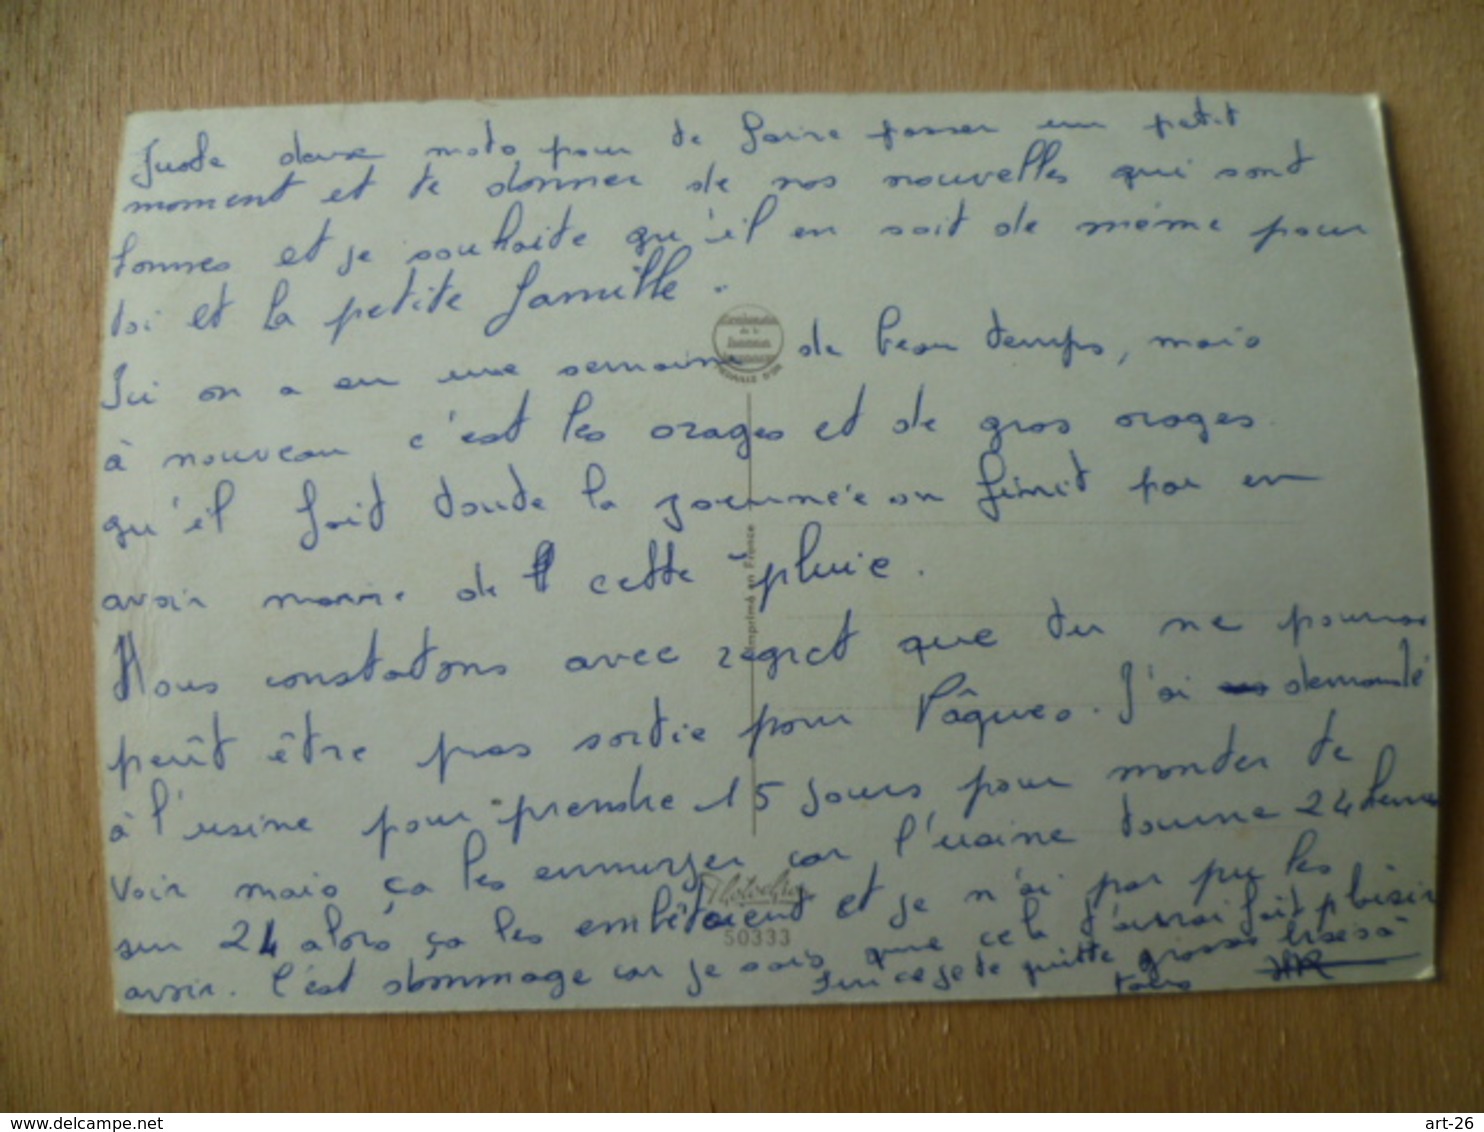 Juste deux mots pour te faire passer un petit
moment et te donner de nos nouvelles qui sont
bonnes et je souhaite qu'il en soit de même pour
toi et la petite famille.
Ici on a eu une semaine de beau temps, mais
à nouveau c'est les orages et de gros orages.
qu'il fait toute la journée on finit par en
avoir marre de cette pluie.
Nous constatons avec regret que tu ne pourras
peût être pas sortie pour Pâques. J'ai demandé
à l'usine pour prendre 15 jours pour monter te
voir mais ça les ennuyer car l'usine tourne 24 heures
sur 24 alors ça les embêtaient et je n'ai pas pu les
avoir. C'est dommage car je sais que cela t'aurai fait plaisir
Sur ce je te quitte grosses bises à
tous
Imprimé en France
Photochrom
50333
delcampe.net
art-26